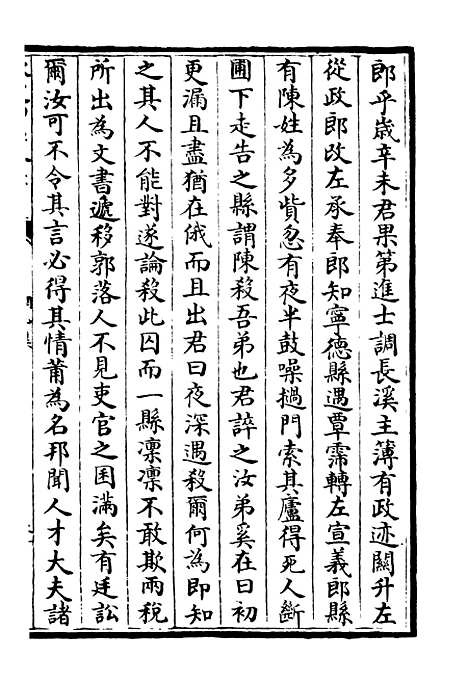 郎乎歲辛未君果第進士調長溪主簿有政迹關升左
從政郎改左承奉郎知寧德縣遇覃霈轉左宣義郎縣
有陳姓為多貲忽有夜半鼓噪撾門索其廬得死人斷
圃下走告之縣謂陳殺吾弟也君誶之汝弟奚在曰初
更漏且盡猶在俄而且出君曰夜深遇殺爾何為即知
之其人不能對遂論殺此囚而一縣凛凛不敢欺兩稅
所出為文書遞移郭落人不見吏官之囷滿矣有廷訟
爾汝可不令其言必得其情莆為名邦聞人才大夫諸